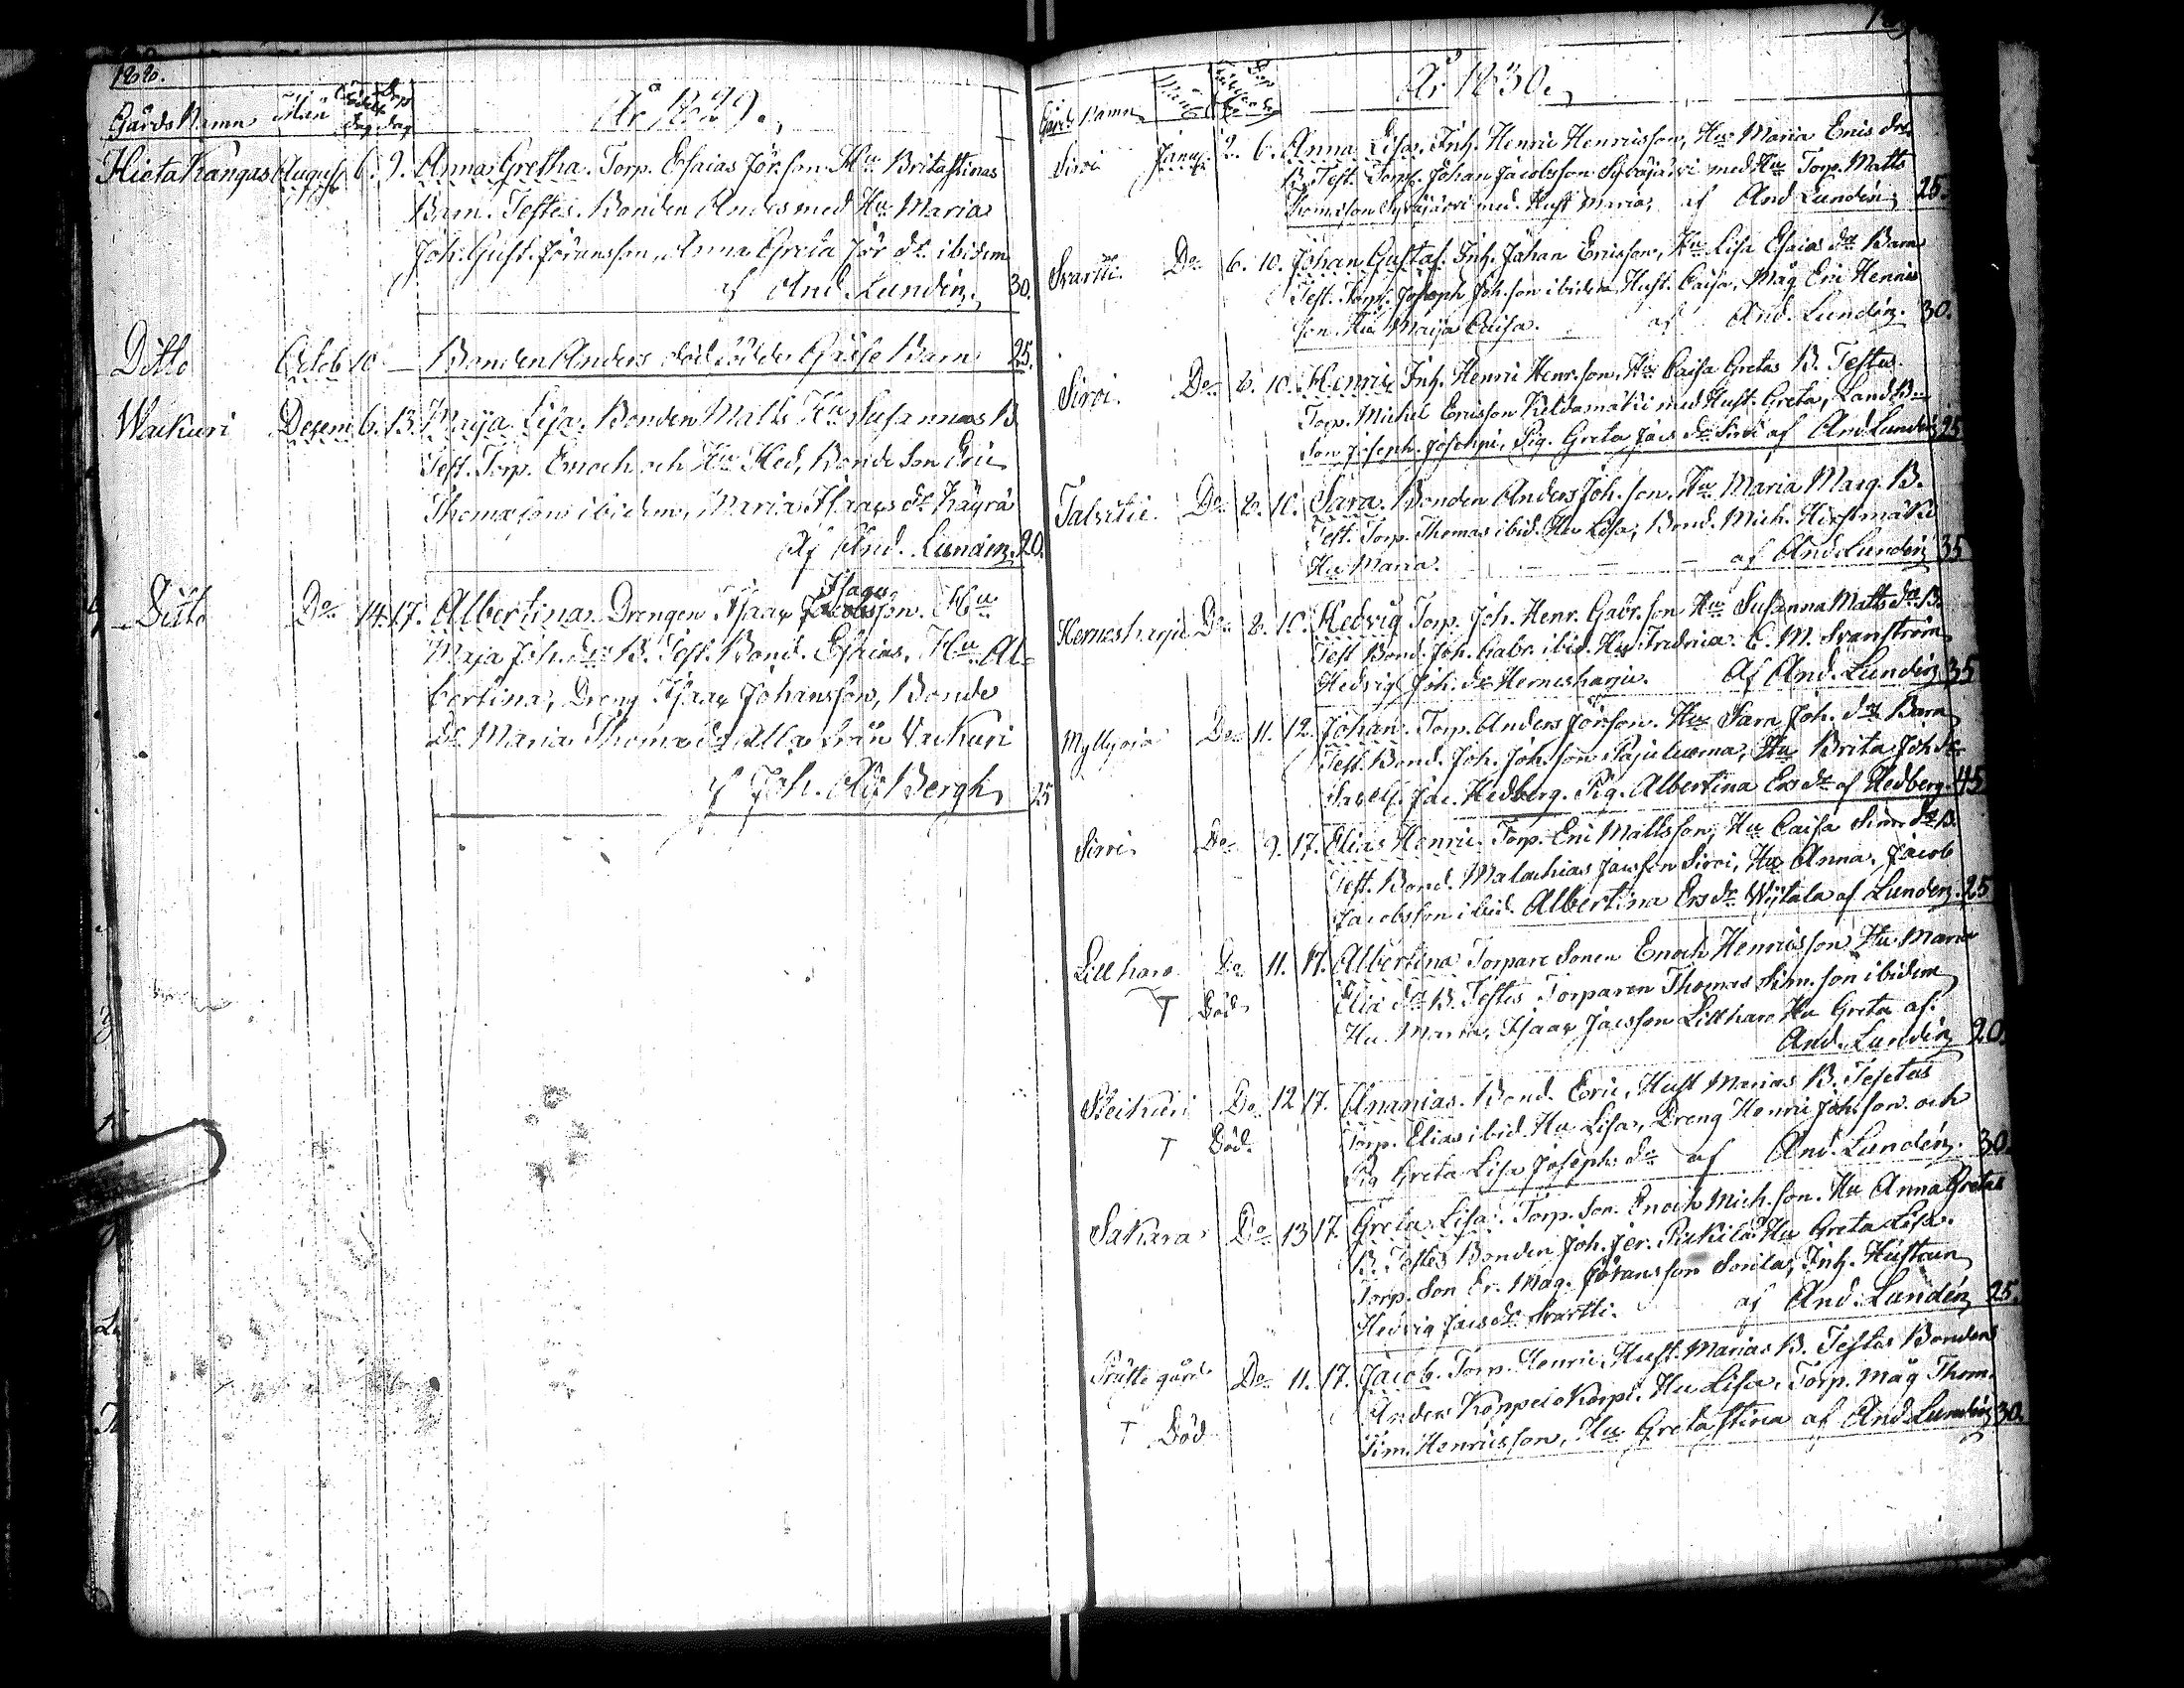 188.
Gårds Namn Mån
År 1829.
Hieta Kangas August 6. 9. Anna Gretha. Torp. Esaias Jör.son Hu Brita Stinas
Barn. Testes. Bonden Anders med Hu Maria
Joh. Gust. Jöransson, Anna Greta Jör dr ibidem
af And. Lundén. 30.
Ditto Octob 10. — Bonden Anders död födde Gåsse Barn 25.
Waikuri Desem 6. 13. Maija Lisa. Bonden Matts Hu Susannas B.
Test. Torp. Enoch och Hu Hed, Bonde Son Eric
Thomasson ibidem, Maria Isaacs dr Käyrä
Af And. Lundén. 20.
Ditto Do 14. 17. Albertina. Drengen Isaac Isaacsson. Hu
Maja Joh. drs B. Test. Bond. Esaias, Hu Al-
bertina, Dreng Isaac Johansson, Bonde
Dr Maria Thomæ dr alla från Vaikuri
af Joh. Bergh 25
År 1830.
Gårds Namn
Siroi Janu. 2. 6. Anna Lisa. Inh. Henric Henricsson, Hu Maria Erics drs
B. Test. Torp. Johan Jacobsson Syväjärvi med Hu Torp. Matts
Thomasson Syväjärvi med Hust Maria, af And Lundén 25.
Svartti Do 6. 10. Johan Gustaf. Inh. Johan Ericsson, Hu Lisa Esaias dr Barn
Test. Torp. Joseph Joh.son ibidem Hust. Caisa, Måg Eric Henrics
son Hu Maija Caisa. af And. Lundén. 30.
Siroi. Do 6. 10. Henric Inh. Henric Henr.son, Hu Caisa Gretas B. Testes
Torp. Michel Ericsson Kieldamäki med Hust. Greta, Land B.
Son Joseph Josephi, Pig. Greta Jacs dr Siroi af And Lundén 25
Talvitie. Do 8. 10. Sara. Bonden Anders Joh.son. Hu Maria Marg. B.
Test. Torp. Thomas ibid. Hu Lisa, Bond. Mich. Hirsimäki
Hu Maria. — — — af And Lundén 35
Hernesharju Do 8. 10. Hedvig Torp. Joh. Henr. Gabr.son Hu Susanna Matts dr B.
Test Bond. Joh. Gabr. ibid. Hu Fredrica. C. M. Svanström
Hedvig Joh. dr Hernesharju. Af And. Lundén 35
Myllyoia Do 11. 12. Johan. Torp. Anders Jörson. Hu Sara Joh. drs Barn
Test. Bond. Joh. Joh.son Pajuluoma, Hu Brita Joh dr
Jac. Hedberg. Pig. Albertina Ers dr af Hedberg. 45
Siroi Do 9. 17. Elias Henric. Torp. Eric Mattsson, Hu Caisa Sim dr B.
Test. Bond. Malachias Jacsson Siroi, Hu Anna, Jacob
Jacobsson ibid. Albertina Ers dr Wijtala af Lundén. 25
Lill haro Do 11. 17. Albertina Torpare Sonen Enoch Henricsson Hu Maria
T Död Elia dr B. Testes Torparen Thomas Sim.son ibidem
Hu Maria, Isaac Jacsson Lillharo Hu Greta af.
And. Lundén 20.
Peikuri Do. 12 17. Ananias. Bond. Eric, Hust Marias B. Testes
T Död. Torp. Elias ibid. Hu Lisa, Dreng Henric Joh.son och
Pig Greta Lisa Josephs dr af And. Lundén. 30.
Sakara Do 13 17. Greta Lisa. Torp. Son. Enoch Mich.son. Hu Anna Gretas
B. Testes Bonden Joh. Jer. Pirkilä Hu Greta Lisa.
Torp. Son Er. Mag. Jöransson Sorila, Inh. Hustrun
Hedvig Jacs dr Svartti. af And. Lundén 25.
Prütte gård Do 11. 17. Jacob. Torp. Henric, Hust. Marias B. Testes Bonden
T Död Anders Koppelo Korpi. Hu Lisa, Torp. måg Thom.
Sim. Henricsson, Hu Greta Stina af And Lundén 30.